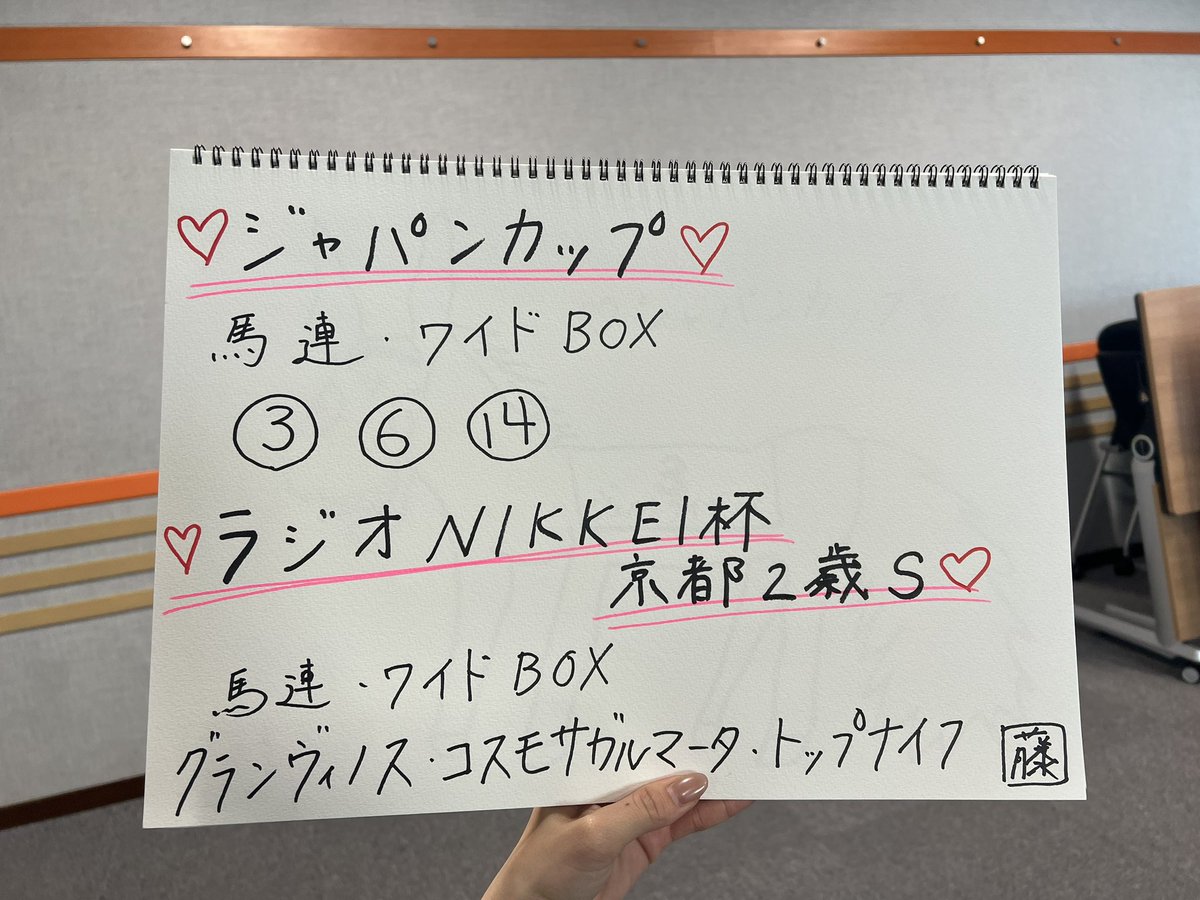 ♡ジャパンカップ♡
馬連・ワイドBOX
③ ⑥ ⑭
♡ラジオNIKKEI杯
京都2歳S♡
馬連・ワイドBOX
グランヴィノス・コスモサガルマータ・トップナイフ
藤